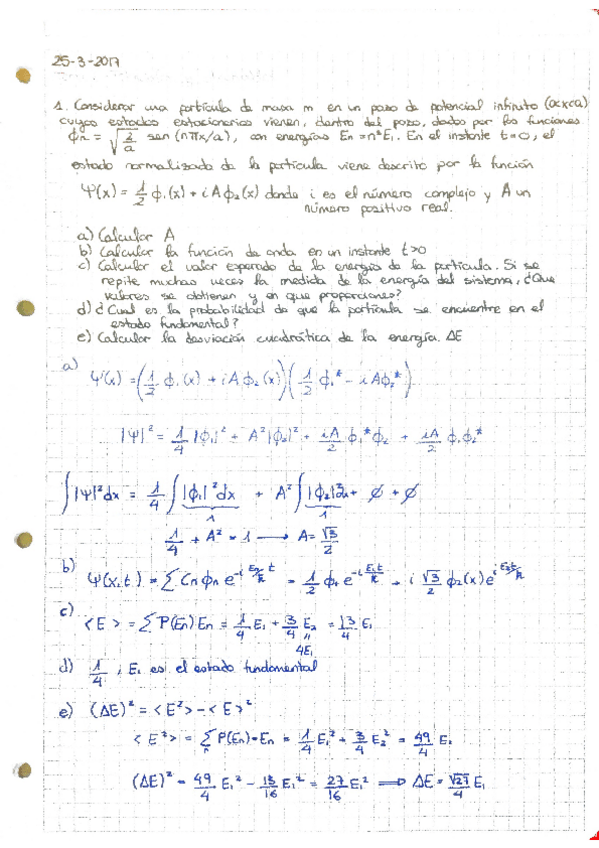 25-3-2017
1. Considerar una partícula de masa m en un pozo de potencial infinito (0<x<a)
cuyos estados estacionarios vienen, dentro del pozo, dados por las funciones
ϕn = √(2/a) sen (nπx/a), con energías En=n²E₁. En el instante t=0, el
estado normalizado de la partícula viene descrito por la función
Ψ(x) = 1/2 ϕ₁(x) + i A ϕ₂(x) donde i es el número complejo y A un
número positivo real.
a) Calcular A
b) Calcular la función de onda en un instante t>0
c) Calcular el valor esperado de la energía de la partícula. Si se
repite muchas veces la medida de la energía del sistema, ¿Que
valores se obtienen y en que proporciones?
d) ¿Cual es la probabilidad de que la partícula se encuentre en el
estado fundamental?
e) Calcular la desviación cuadrática de la energía. ΔE
a) Ψ(x) = (1/2 ϕ₁(x) + i A ϕ₂(x)) (1/2 ϕ₁* - i A ϕ₂*)
|Ψ|² = 1/4 |ϕ₁|² + A² |ϕ₂|² + iA/2 ϕ₁* ϕ₂ + iA/2 ϕ₁ ϕ₂*
∫|Ψ|² dx = 1/4 ∫|ϕ₁|² dx + A² ∫|ϕ₂|² dx + ∅ + ∅
1 1
1/4 + A² = 1 → A = √3/2
b) Ψ(x,t) = Σ Cn ϕn e^(-i En/ħ t) = 1/2 ϕ₁ e^(-i E₁t/ħ) + i √3/2 ϕ₂(x) e^(i E₂t/ħ)
c) <E> = Σ P(En) En = 1/4 E₁ + 3/4 E₂ = 13/4 E₁
4E₁
d) 1/4, E₁ es el estado fundamental
e) (ΔE)² = <E²> - <E>²
<E²> = Σ P(En)·En = 1/4 E₁² + 3/4 E₂² = 49/4 E₁
(ΔE)² = 49/4 E₁² - 13/16 E₁² = 27/16 E₁² ⟹ ΔE = √27/4 E₁